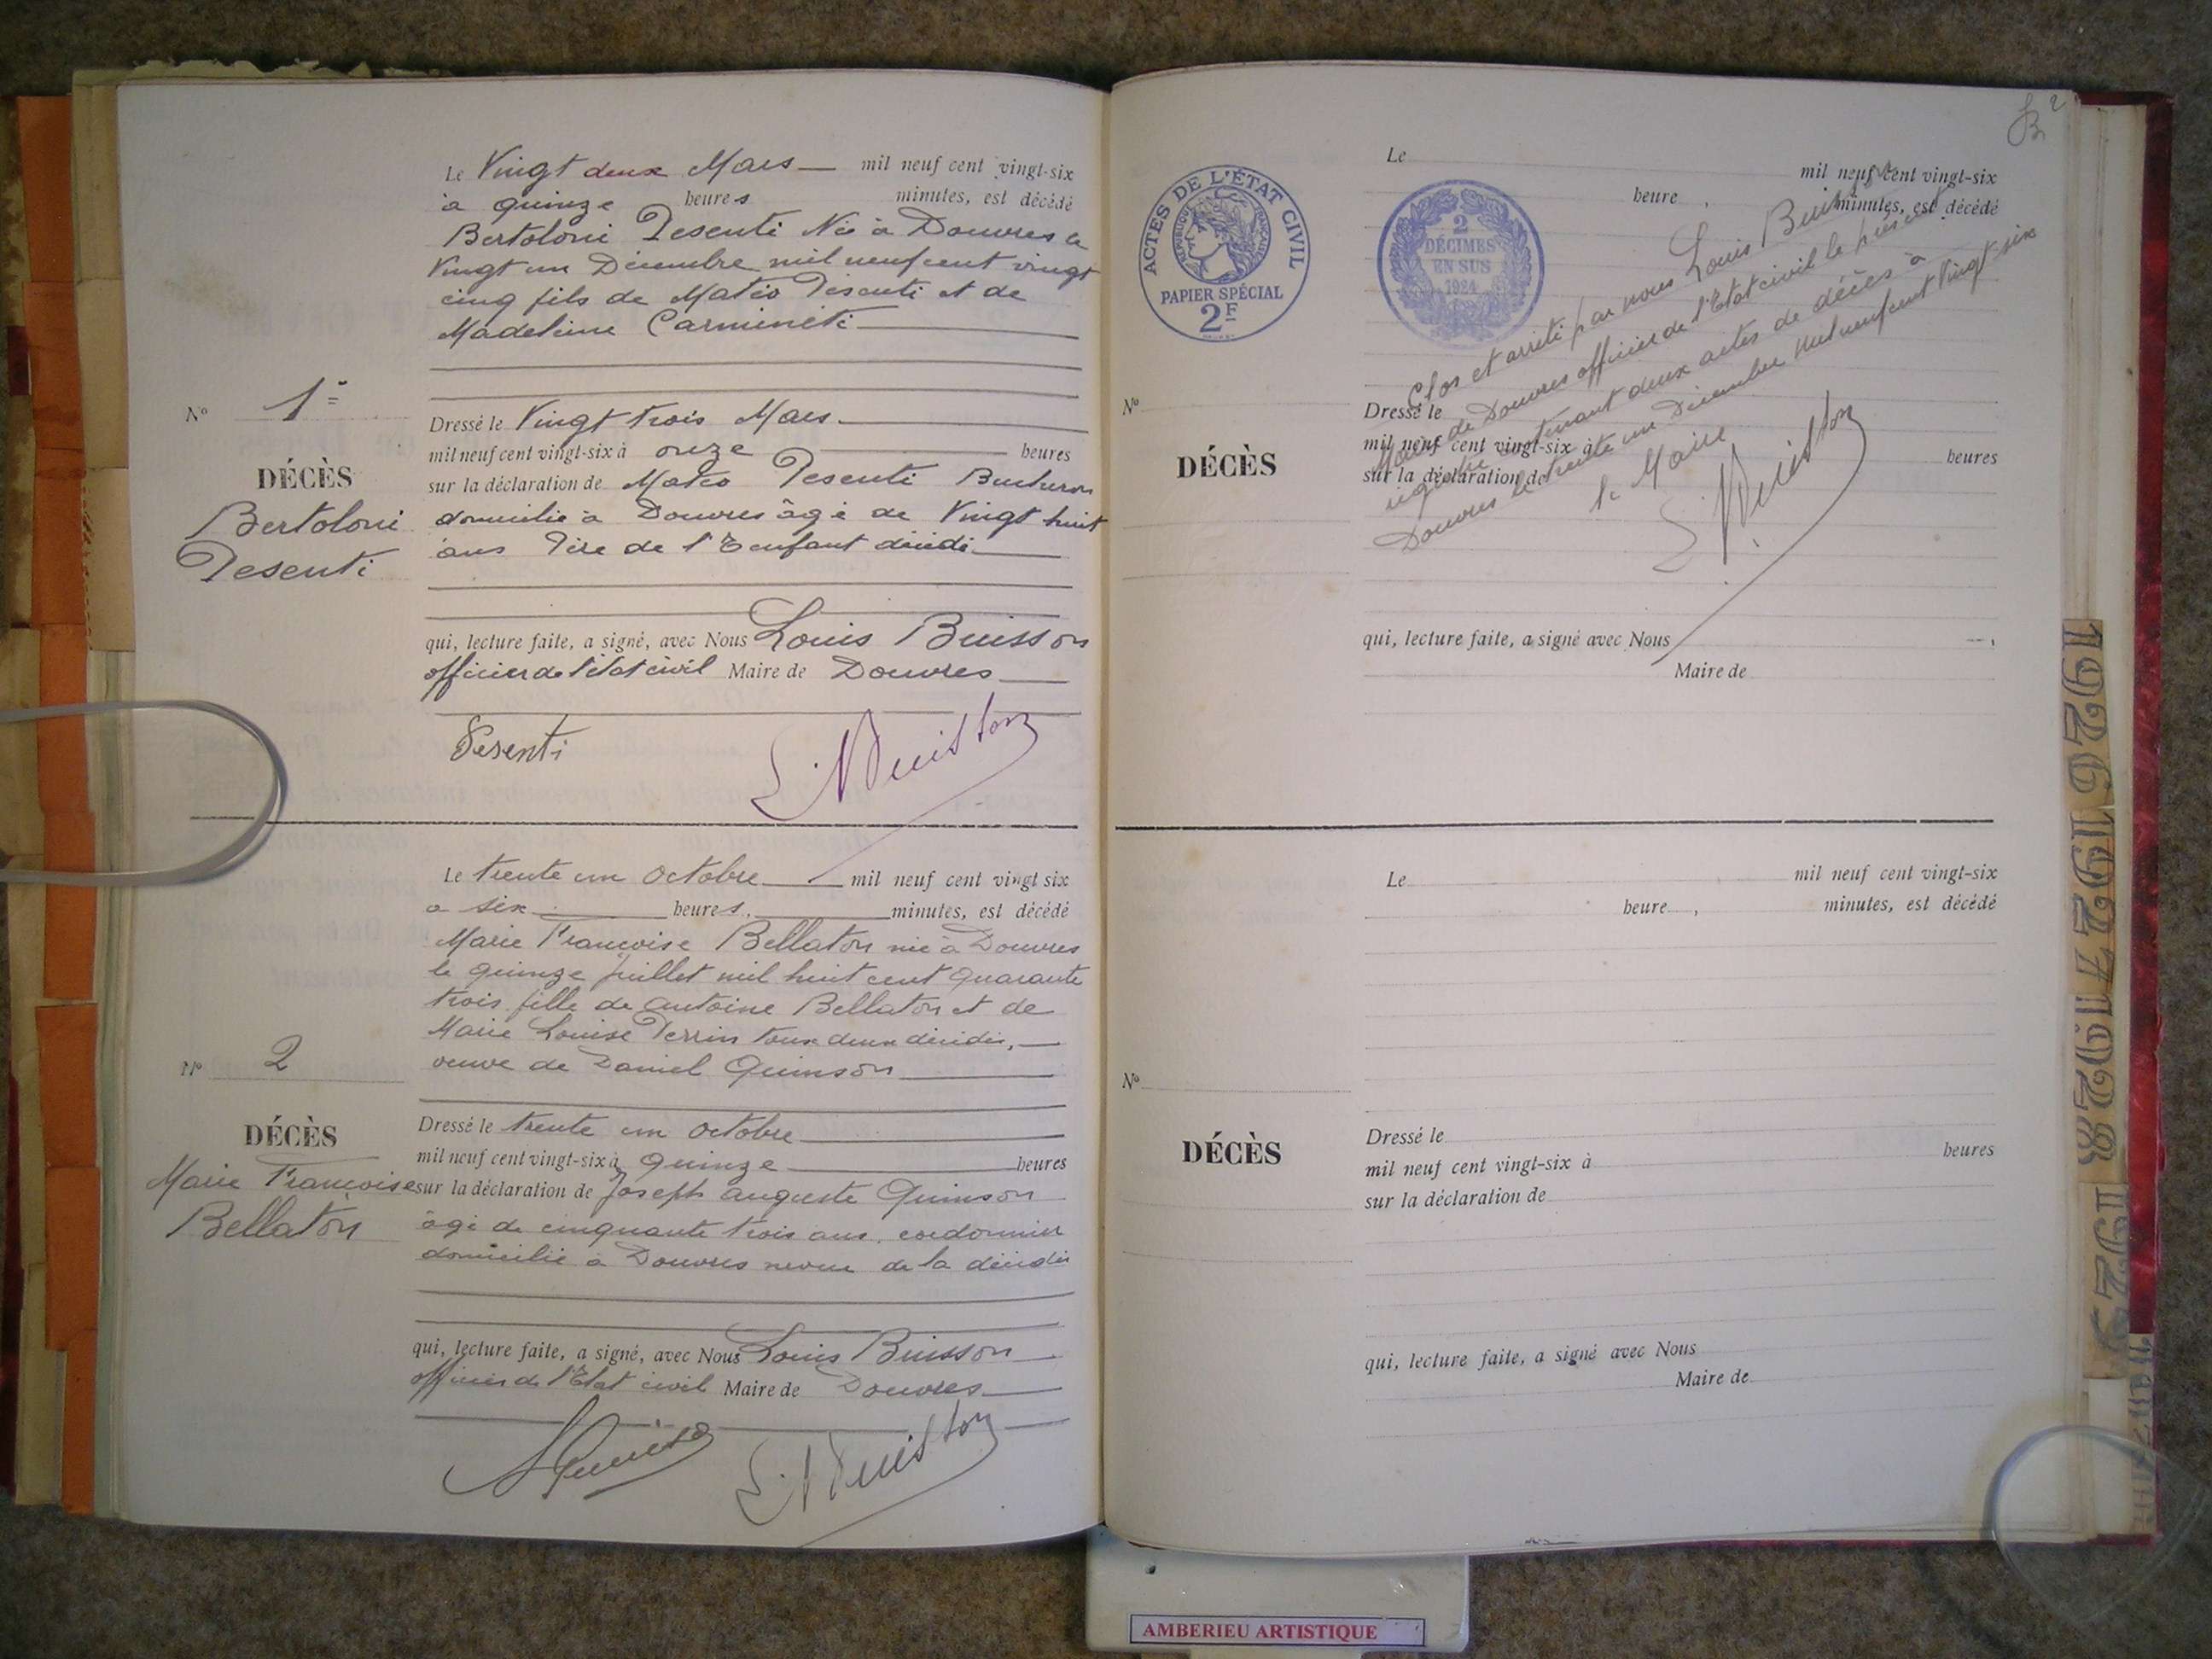 Le Vingt deux Mars mil neuf cent vingt-six
à quinze heures minutes, est décédé
Bertoloni Pesenti Née à Douvres le
Vingt un Décembre mil neuf cent vingt
cinq fils de Matéo Pesenti et de
Madeleine Carmineti
Nº 1er
DÉCÈS
Bertoloni
Pesenti
Dressé le Vingt trois Mars
mil neuf cent vingt-six à onze heures
sur la déclaration de Matéo Pesenti Bucheron
domicilié à Douvres âgé de Vingt huit
ans Père de l'Enfant décédé
qui, lecture faite, a signé, avec Nous Louis Buisson
officier de l'état civil Maire de Douvres
Pesenti
L. Buisson
Le trente un Octobre mil neuf cent vingt six
à six heures, minutes, est décédé
Marie Françoise Bellaton née à Douvres
le quinze juillet mil huit cent quarante
trois fille de Antoine Bellaton et de
Marie Louise Perrin tous deux décédés,
veuve de Daniel Quinson
Nº 2
DÉCÈS
Marie Françoise
Bellaton
Dressé le trente un Octobre
mil neuf cent vingt-six à Quinze heures
sur la déclaration de Joseph Auguste Quinson
âgé de cinquante trois ans, cordonnier
domicilié à Douvres neveu de la décédée
qui, lecture faite, a signé, avec Nous Louis Buisson
officier de l'Etat civil Maire de Douvres
L. Buisson
2
ACTES DE L'ÉTAT CIVIL
RÉPUBLIQUE FRANÇAISE
PAPIER SPÉCIAL
2F
2
DÉCIMES
EN SUS
1924
Le
mil neuf cent vingt-six
heure, minutes, est décédé
Clos et arrêté par nous Louis Buisson
Maire de Douvres officier de l'Etat civil le présent
registre contenant deux actes de décès à
Douvres le trente un Décembre mil neuf cent Vingt six
le Maire
L. Buisson
Nº
DÉCÈS
Dressé le
mil neuf cent vingt-six à heures
sur la déclaration de
qui, lecture faite, a signé avec Nous
Maire de
Le mil neuf cent vingt-six
heure, minutes, est décédé
Nº
DÉCÈS
Dressé le
mil neuf cent vingt-six à heures
sur la déclaration de
qui, lecture faite, a signé avec Nous
Maire de
1926
1927
1928
1929
AMBERIEU ARTISTIQUE